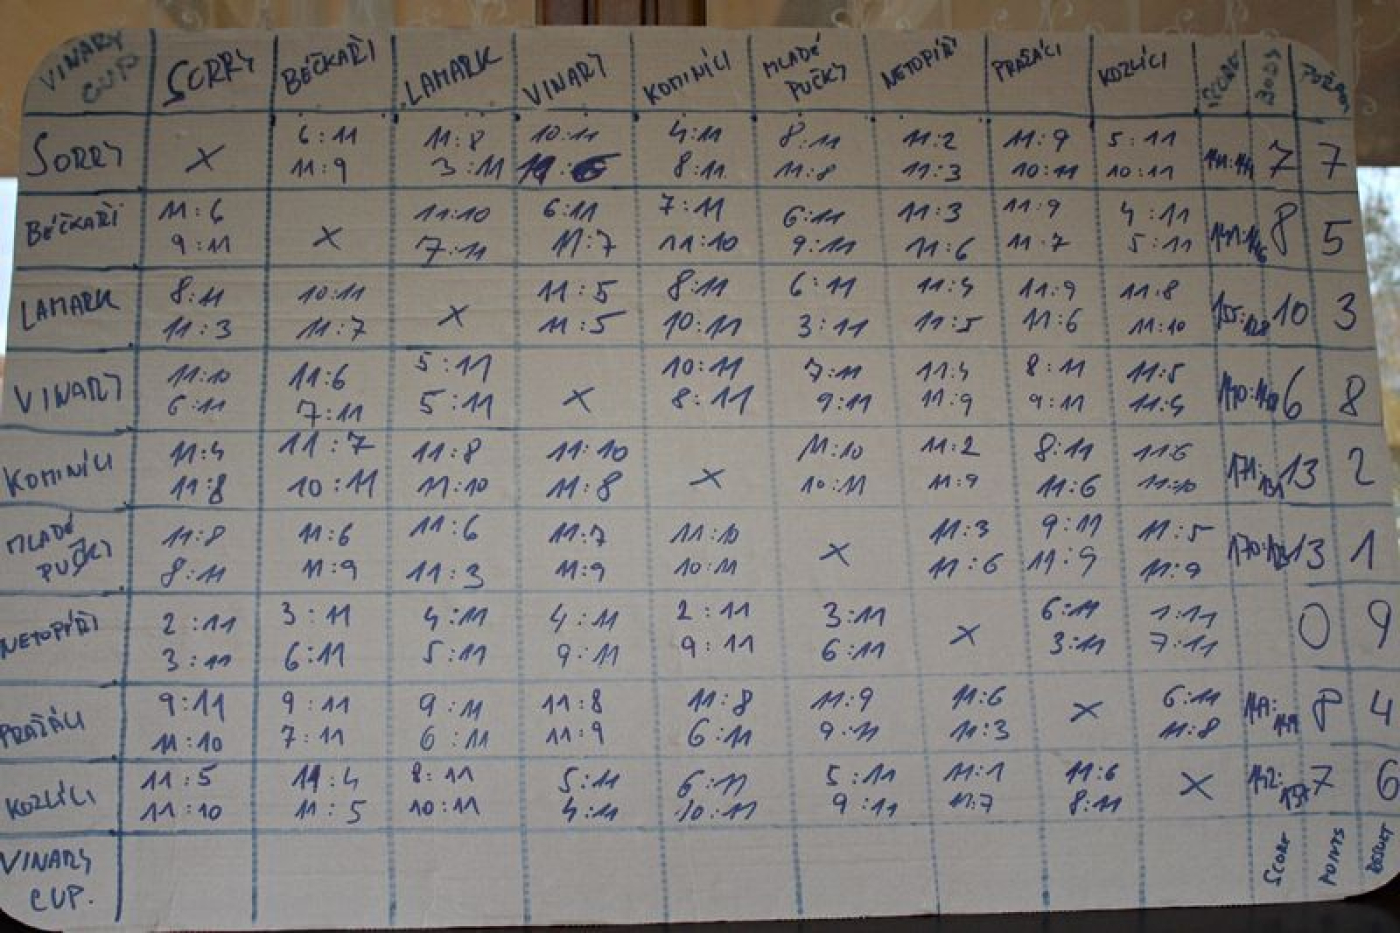 VINARY CUP SORRY BÉČKAŘI LAMARK VINARY KOMINÍCI MLADÉ PUČKY NETOPÍŘI PRAŽÁCI KOZLÍCI SCORE BODY POŘADÍ
SORRY X 6:11 11:8 10:11 4:11 8:11 11:2 11:9 5:11 7 7
11:9 3:11 11:6 8:11 11:8 11:3 10:11 10:11
BÉČKAŘI 11:6 X 11:10 6:11 7:11 6:11 11:3 11:9 4:11 8 5
9:11 7:11 11:7 11:10 9:11 11:6 11:7 5:11
LAMARK 8:11 10:11 X 11:5 8:11 6:11 11:4 11:9 11:8 155:128 10 3
11:3 11:7 11:5 10:11 3:11 11:5 11:6 11:10
VINARY 11:10 11:6 5:11 X 10:11 7:11 11:4 8:11 11:5 6 8
6:11 7:11 5:11 8:11 9:11 11:9 9:11 11:4
KOMINÍCI 11:4 11:7 11:8 11:10 X 11:10 11:2 8:11 11:6 171:131 13 2
11:8 10:11 11:10 11:8 10:11 11:9 11:6 11:10
MLADÉ PUČKY 11:8 11:6 11:6 11:7 11:10 X 11:3 9:11 11:5 13 1
8:11 11:9 11:3 11:9 10:11 11:6 11:9 11:9
NETOPÍŘI 2:11 3:11 4:11 4:11 2:11 3:11 X 6:11 1:11 0 9
3:11 6:11 5:11 9:11 9:11 6:11 3:11 7:11
PRAŽÁCI 9:11 9:11 9:11 11:8 11:8 11:9 11:6 X 6:11 8 4
11:10 7:11 6:11 11:9 6:11 9:11 11:3 11:8
KOZLÍCI 11:5 11:4 8:11 5:11 6:11 5:11 11:1 11:6 X 7 6
11:10 11:5 10:11 4:11 10:11 9:11 11:7 8:11
VINARY CUP. SCORE POINTS RESULT